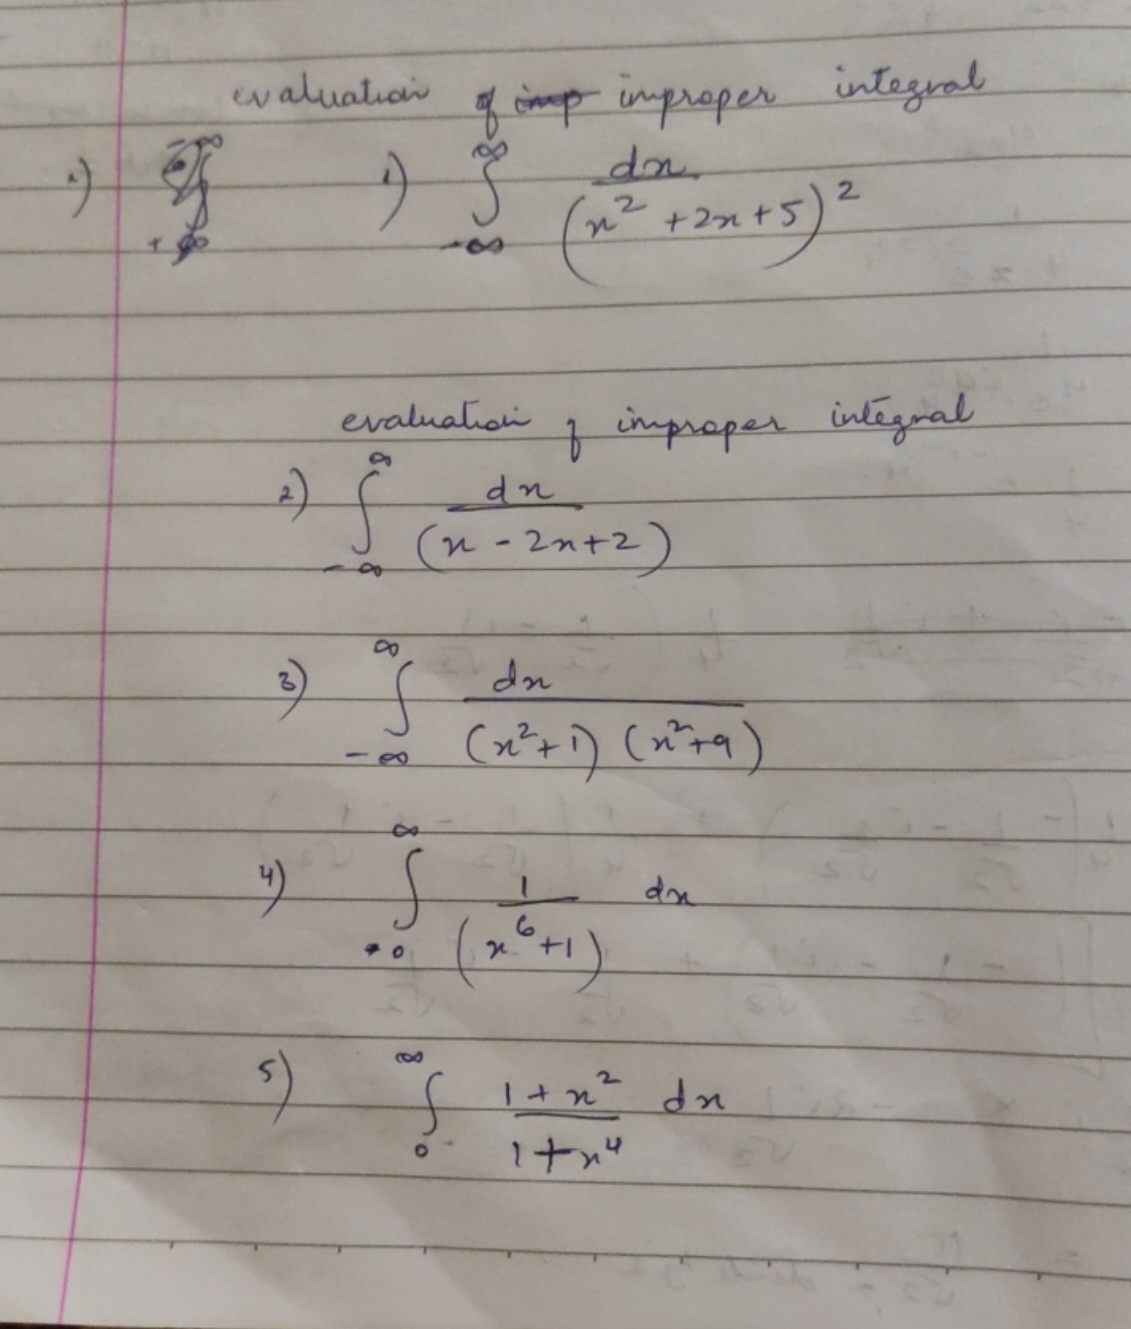 evaluation of imp improper integral
1) ∫_{-∞}^{∞} dx / (x² + 2x + 5)²
evaluation of improper integral
2) ∫_{-∞}^{∞} dx / (x - 2x + 2)
3) ∫_{-∞}^{∞} dx / (x² + 1) (x² + 9)
4) ∫_{0}^{∞} 1 / (x⁶ + 1) dx
5) ∫_{0}^{∞} 1 + x² / 1 + x⁴ dx